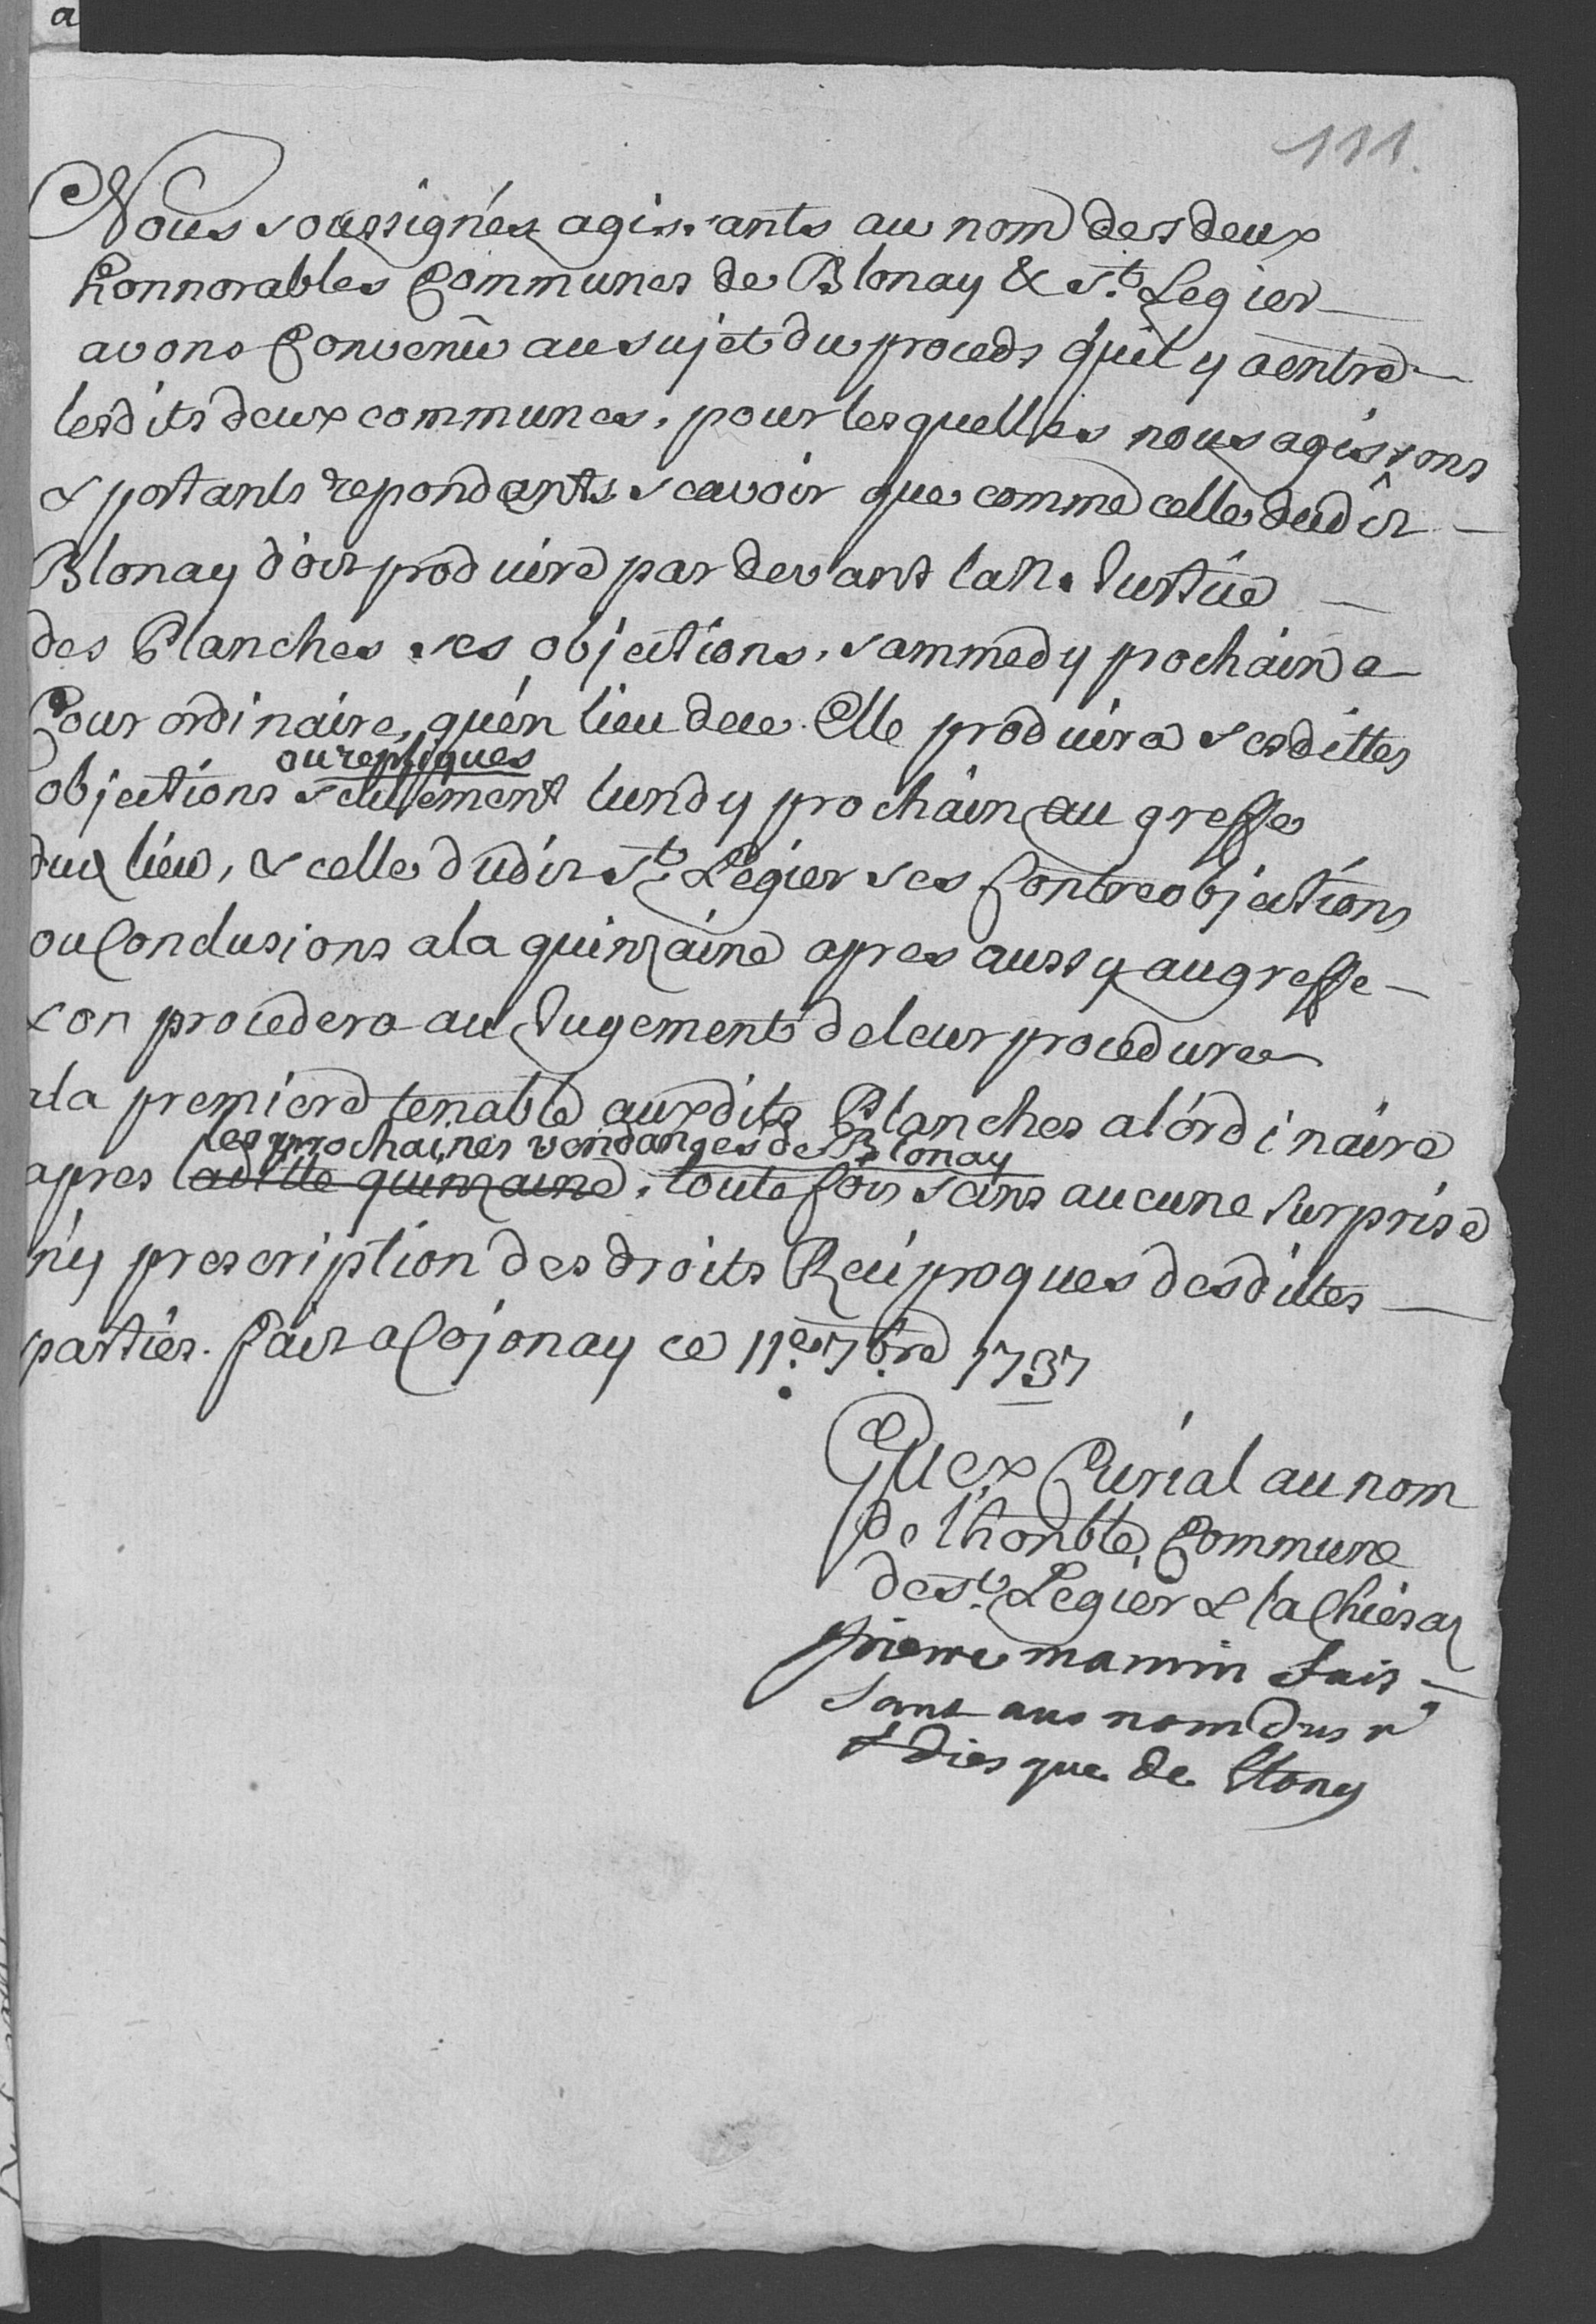 a
111.
Nous soussignés agissants au nom des deux
honnorables Communes de Blonay & St. Legier
avons Convenû au sujet du procès quil y a entre
lesdits deux communes, pour lesquelles nous agissons
& portants repondants scavoir que comme celle dudit
Blonay doit produire par devant la n. Justice
des Planches ses objections, sammedy prochain a
Cour ordinaire, quén lieu de ce Elle produira sesdittes
ou repliques
objections seulement lundy prochain au greffe
dud lieu, & celle dudit St. Legier ses Contreobjections
ou Conclusions a la quinzaine apres aussy au greffe
& on procedera au Jugement de leur procedure
a la premiere tenable auxdits Planches a lórdinaire
les prochaines vendanges de Blonay
apres laditte quinzaine, toute fois sans aucune surprise
ny prescription des droits Reciproques desdittes
parties. fait a Cojonay ce 11e. 7bre 1737
Guex Curial au nom
de lhonble Commune
de St. Legier & la Chiesaz
pierre mamin fais
sant au nom du
de Blony